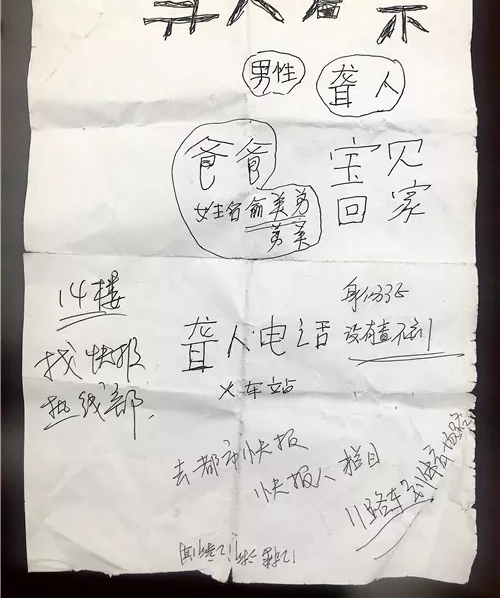 寻人启示
男性 聋人
爸爸 宝贝
回家
女生名俞美勇
勇美
14楼
身份证
聋人电话 没有查不到
找快报
热线部
火车站
去都市快报
快报人栏目
11路车到体育场路